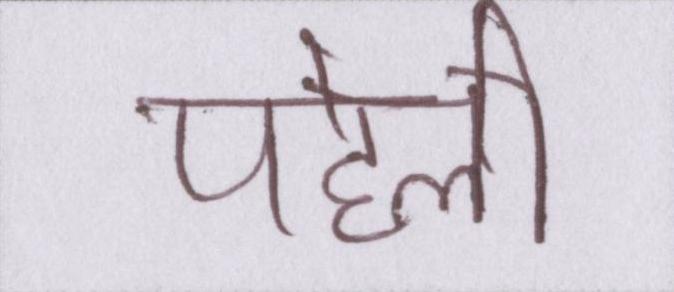 पहेली